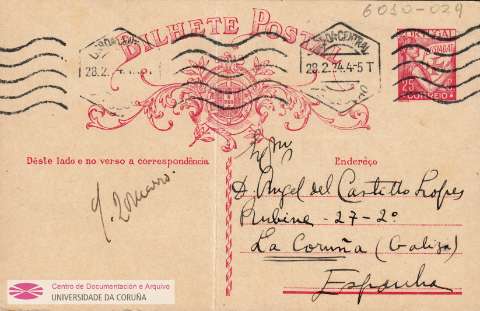 6050-029
BILHETE POSTAL
LISBOA CENTRAL
28.2.
LISBOA CENTRAL
28.2.34.4-5 T
PORTUGAL
25
CORREIO
Dêste lado e no verso a correspondência
Enderêço
D. Angel del Castillo Lopes
Rubine - 27-2º
La Coruña (Galiza)
Espanha
Centro de Documentación e Arquivo
UNIVERSIDADE DA CORUÑA